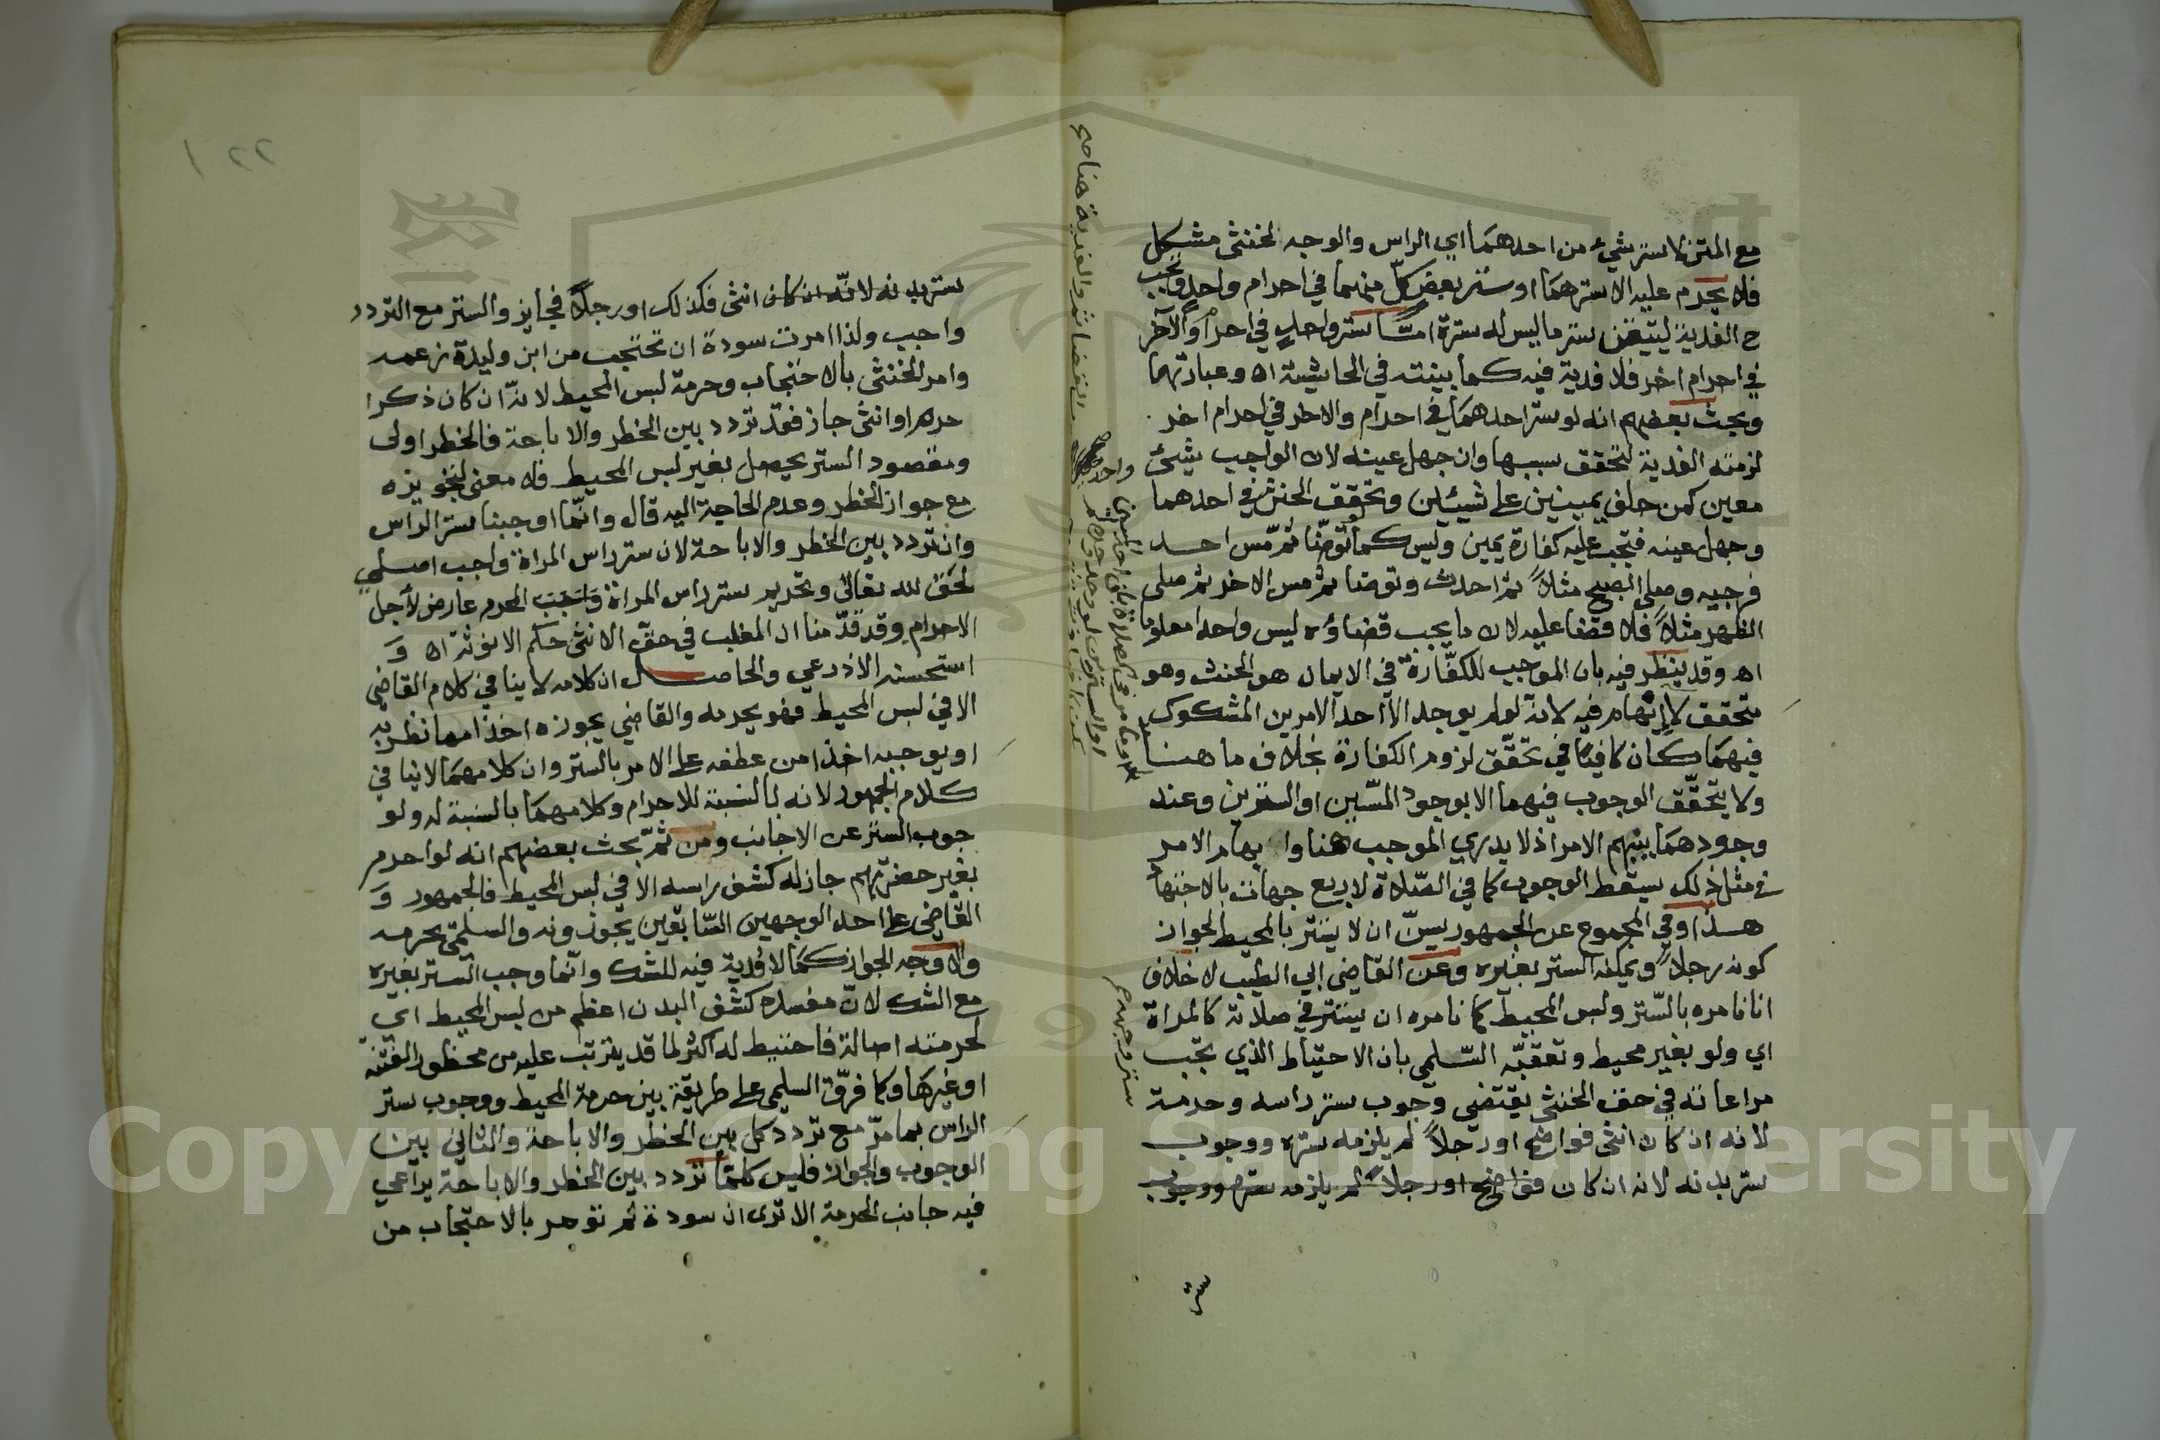 مع المتن لا ستر شيء من احدهما اي الراس والوجه لخنثى مشكل
فلا يحرم عليه الا سترهما او ستر بعض كل منهما في احرام واحد وتجب
ح الفدية ليتيقن ستر ما ليس له ستره امّا ستر واحدٍ في احرام والآخر
في احرام اخر فلا فدية فيه كما بينته في الحاشية اه وعبارتهما
وبحث بعضهم انه لو ستر احدهما في احرام والاخر في احرام اخر
لزمته الفدية لتحقق سببها وان جهل عينه لان الواجب شيئ
معين كمن حلف يمينين على شيئين وتحقق الحنث في احدهما
وجهل عينه فتجب عليه كفارة يمين وليس كما لو توضّا ثم مّس احد
فرجيه وصلى الصبح مثلاً ثم احدث وتوضا ثم مس الاخر ثم صلى
الظهر مثلاً فلا قضا عليه لان ما يجب قضاؤه ليس واحدا معلوما
اه وقد ينظر فيه بان الموجب للكفّارة في الايمان هو الحنث وهو
متحقق لا إبهام فيه لانه لو لم يوجد الا احد الامرين المشكوك
فيهما كان كافيا في تحقّق لزوم الكفارة بخلاف ما هنا
ولا يتحقّق الوجوب فيهما الا بوجود المسّين او السترين وعند
وجودهما ينبهم الامر اذ لا يدري الموجب هنا وابهام الامر
في مثل ذلك يسقط الوجوب كما في الصّلاة لاربع جهات بالاجتهاد
هذا وفي المجموع عن الجمهور يسنّ ان لا يستتر بالمحيط لجواز
كونه رجلاً ويمكنه الستر بغيره وعن القاضي ابي الطيب لا خلاف
انا نامره بالسّتر ولبس المحيط كما نامره ان يستتر في صلاته كالمراة
اي ولو بغير محيط وتعقّبه السّلمي بان الاحتياط الذي تجب
مراعاته في حق الخنثى يقتضي وجوب ستر راسه وحرمة
لانه ان كان انثى فواضح او رجلاً لم يلزمه ستره ووجوب
ستر بدنه لانه ان كان فواضح او رجلاً لم يلزمه ستره ووجوب
ستر
واحد
ستر وجهه
ستر بدنه لانّه ان كان انثى فكذلك او رجلاً فجايز والستر مع التردد
واجب ولذا امرت سودة ان تحتجب من ابن وليدة زمعه
وامر الخنثى بالاحتجاب وحرمة لبس المحيط لانّه ان كان ذكرا
حرم او انثى جاز فقد تردد بين الحظر والاباحة فالحظر اولى
ومقصود الستر يحصل بغير لبس المحيط فلا معنى لتجويزه
مع جواز الحظر وعدم الحاجة اليه قال وانّما اوجبنا ستر الراس
وان تردد بين الحظر والاباحة لان ستر راس المراة واجب اصلي
لحق لله تعالى وتحريم ستر راس المراة المحرم عارض لأجل
الاحرام وقد قدّمنا ان المغلب في حق الانثى حكم الانوثة اه و
استحسنه الاذرعي والحاصل ان كلامه لا ينافي كلام القاضي
الا في لبس المحيط فهو يحرمه والقاضي يجوزه اخذا مما نظر به
او يوجبه اخذا من عطفه على الامر بالستر وان كلامهما لا ينافي
كلام الجمهور لانه بالنسبة للاحرام وكلامهما بالنسبة له ولو
جوب الستر عن الاجانب ومن ثمّ بحث بعضهم انه لو احرم
بغير حضرتهم جاز له كشف راسه الا في لبس المحيط فالجمهور و
القاضي على احد الوجهين السّابقين يجوزونه والسلمّي يحرمه
والاوجه الجواز كما لا فدية فيه للشك وانّما وجب الستر بغيره
مع الشك لانّ مفسدة كشف البدن اعظم من لبس المحيط اي
لحرمته اصالة فاحتيط له اكثر لما قد يترتب عليه من محظور الفتنة
او غيرها وكما فرّق السلمي على طريقة بين حرمة المحيط ووجوب ستر
الراس بما مرّ مع تردد كل بين الحظر والاباحة والثاني بين
الوجوب والجواز فليس كلّما تردد بين الحظر والاباحة يراعي
فيه جانب الحرمة الا ترى ان سودة لم تومر بالاحتجاب من
٢٢١
Copyright © King Saud University